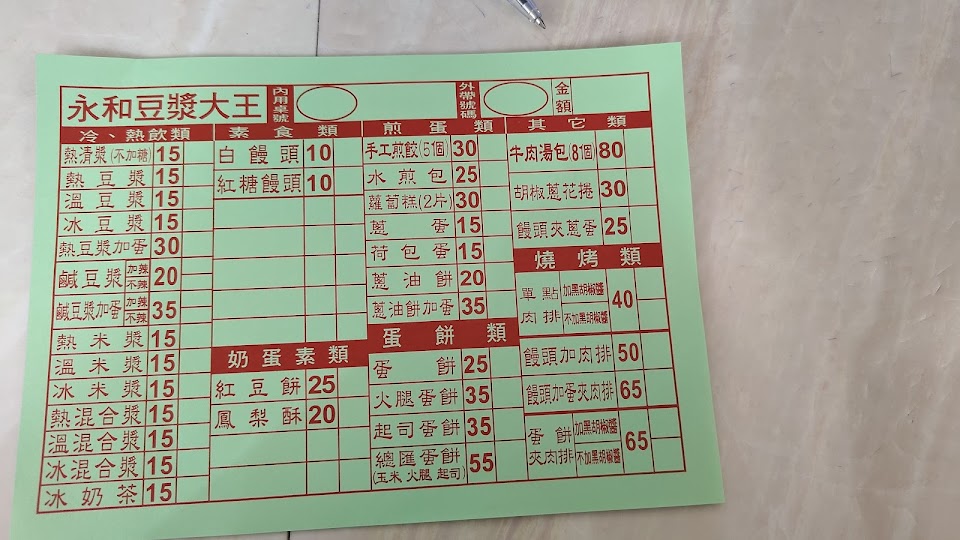 永和豆漿大王
內用桌號
外帶號碼
金額
冷、熱飲類
熱清漿(不加糖) 15
熱豆漿 15
溫豆漿 15
冰豆漿 15
熱豆漿加蛋 30
鹹豆漿 加辣 不辣 20
鹹豆漿加蛋 加辣 不辣 35
熱米漿 15
溫米漿 15
冰米漿 15
熱混合漿 15
溫混合漿 15
冰混合漿 15
冰奶茶 15
素食類
白饅頭 10
紅糖饅頭 10
奶蛋素類
紅豆餅 25
鳳梨酥 20
煎蛋類
手工煎餃(5個) 30
水煎包 25
蘿蔔糕(2片) 30
蔥蛋 15
荷包蛋 15
蔥油餅 20
蔥油餅加蛋 35
蛋餅類
蛋餅 25
火腿蛋餅 35
起司蛋餅 35
總匯蛋餅 55
(玉米 火腿 起司)
其它類
牛肉湯包(8個) 80
胡椒蔥花捲 30
饅頭夾蔥蛋 25
燒烤類
單點肉排 加黑胡椒醬 不加黑胡椒醬 40
饅頭加肉排 50
饅頭加蛋夾肉排 65
蛋餅夾肉排 加黑胡椒醬 不加黑胡椒醬 65